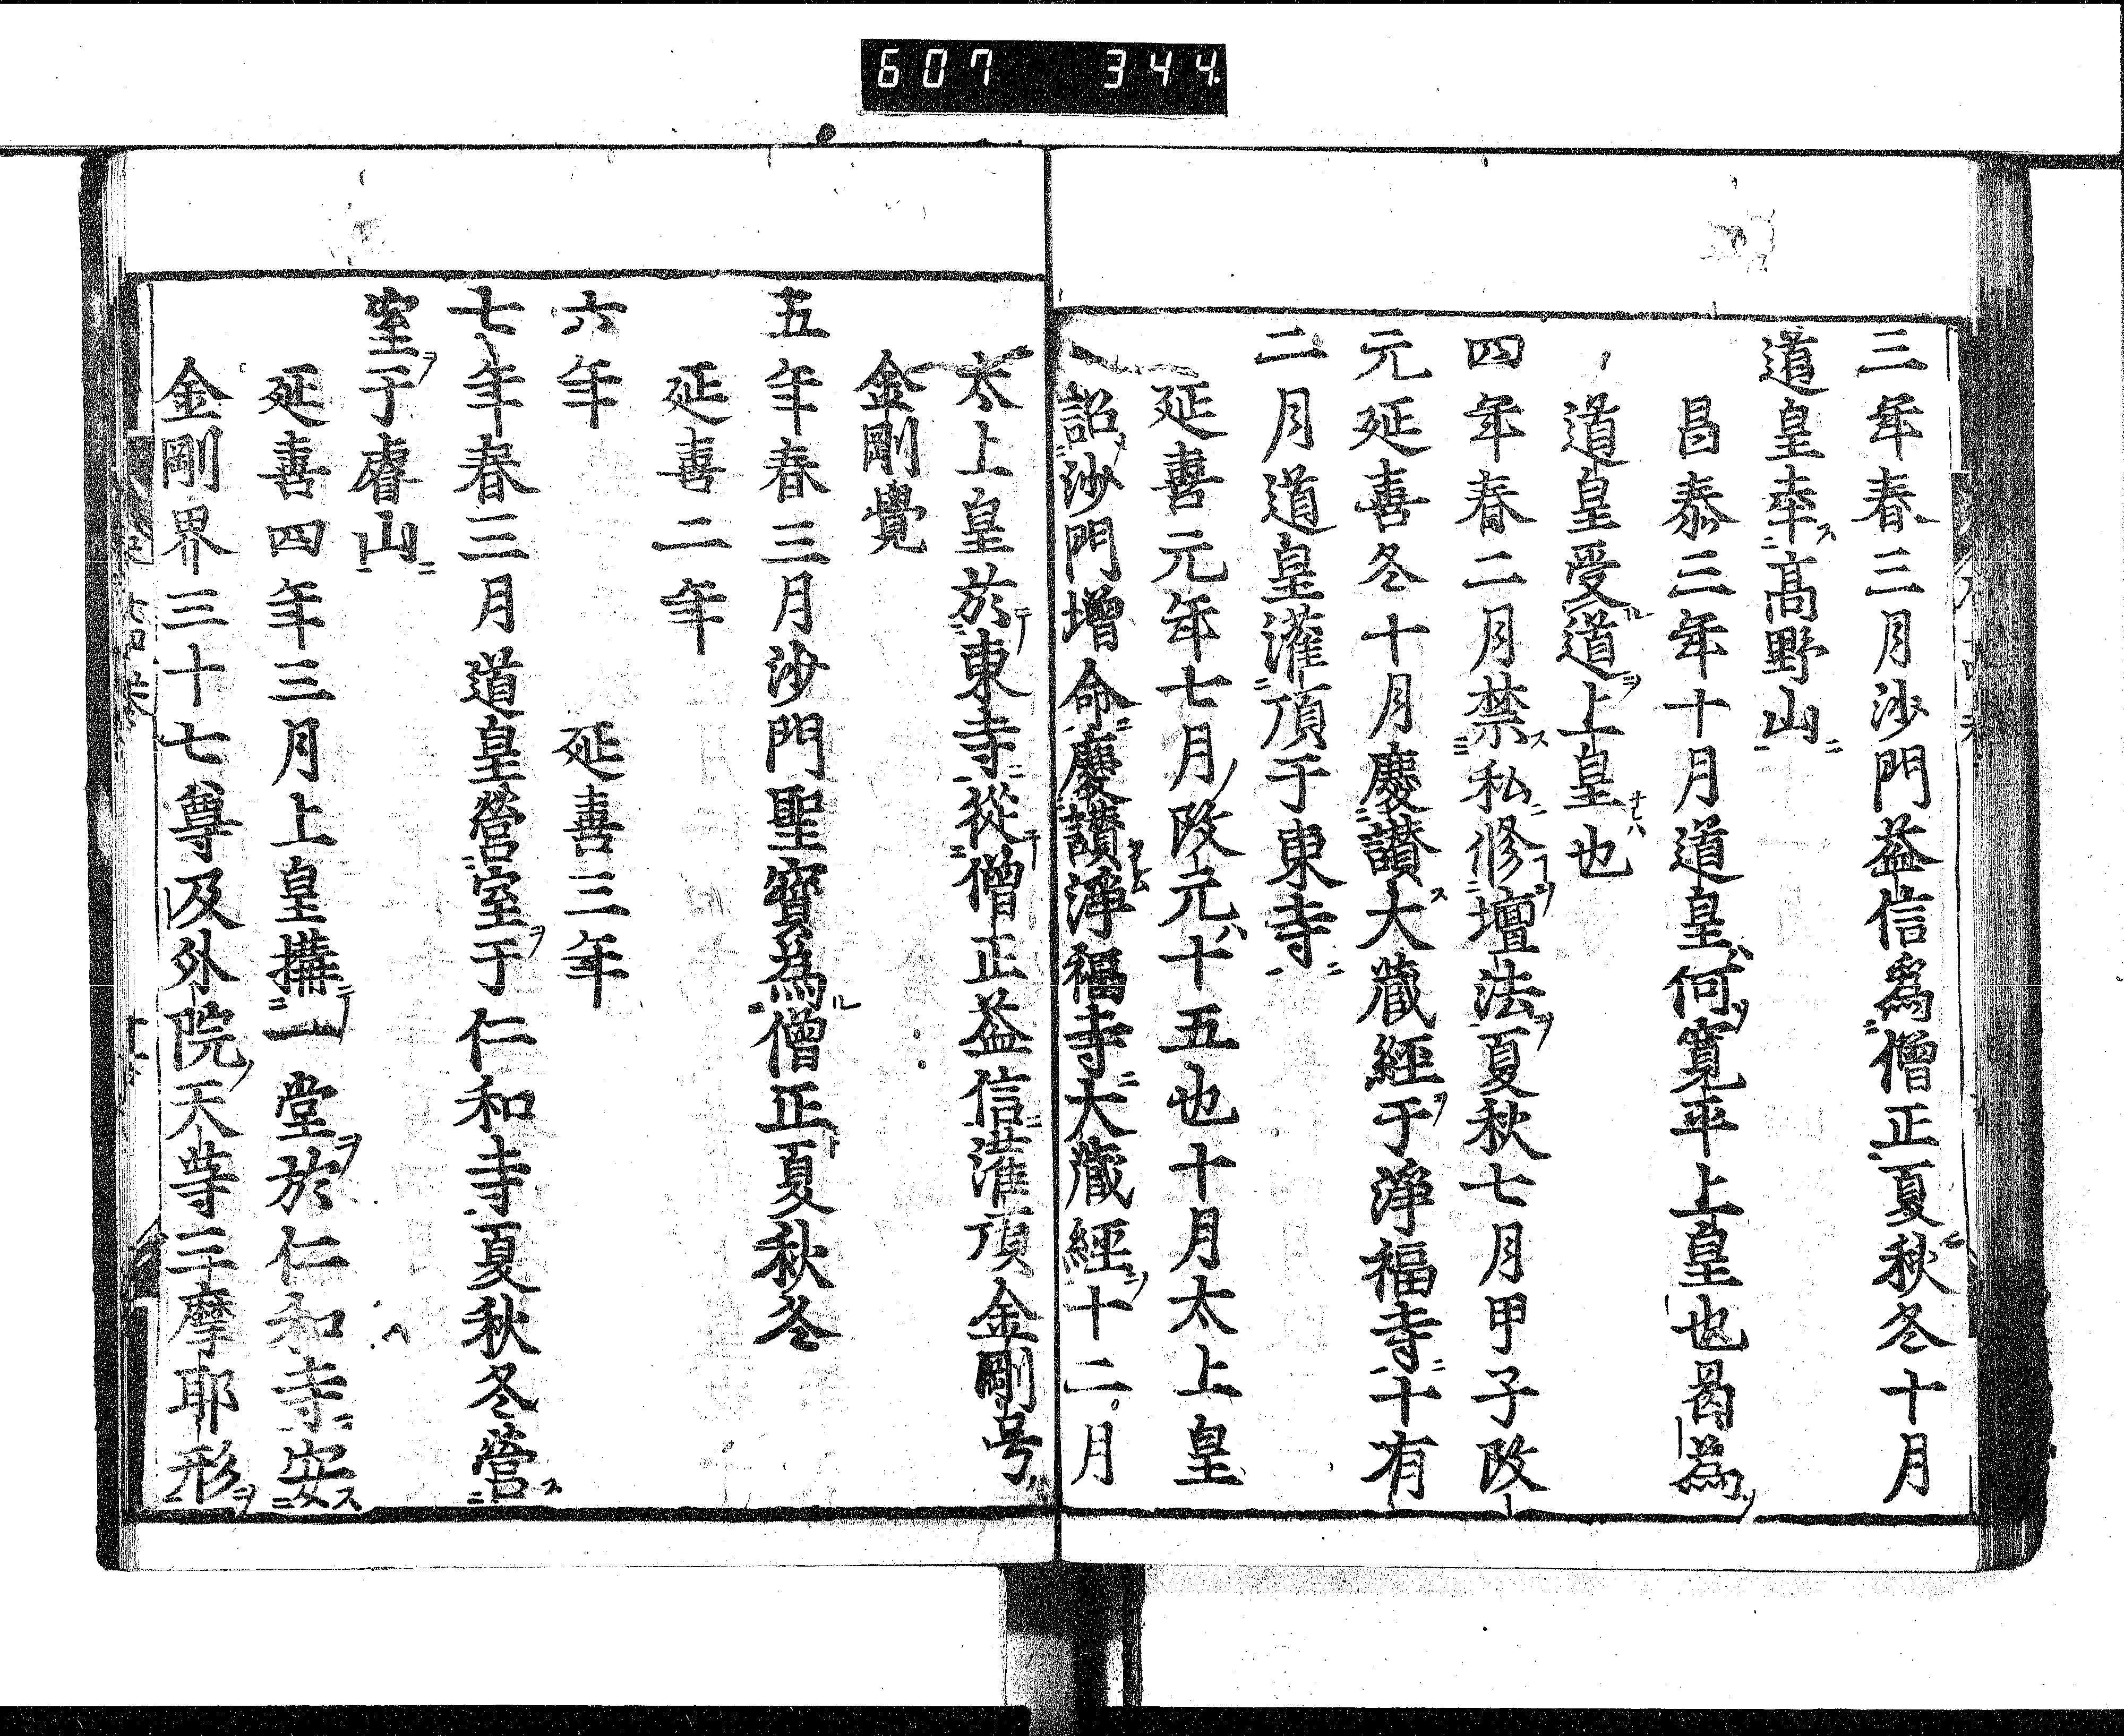 607 344
三年春三月沙門益信爲僧正夏秋冬十月
道皇幸高野山
昌泰三年十月道皇何寛平上皇也曷為
道皇受道上皇也
四年春二月禁私修壇法夏秋七月甲子改
元延喜冬十月慶讃大藏經于淨福寺十有
二月道皇灌頂于東寺
延喜元年七月改元十五也十月太上皇
詔沙門増命慶讃淨福寺大藏經十二月
太上皇於東寺從僧正益信灌頂金剛号
金剛覺
五年春三月沙門聖寳為僧正夏秋冬
延喜二年
六年 延喜三年
七年春三月道皇營室于仁和寺夏秋冬營
室于睿山
延喜四年三月上皇搆一堂於仁和寺安
金剛界三十七尊及外院天等三摩耶形